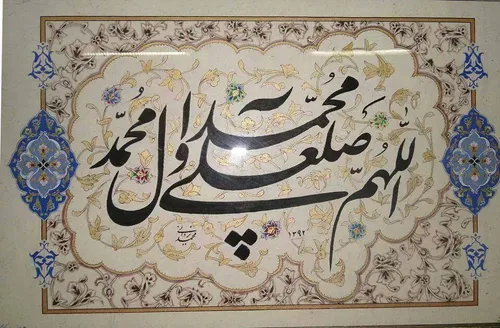 اللهم صل علی محمد و آل محمد
۱۳۹۲